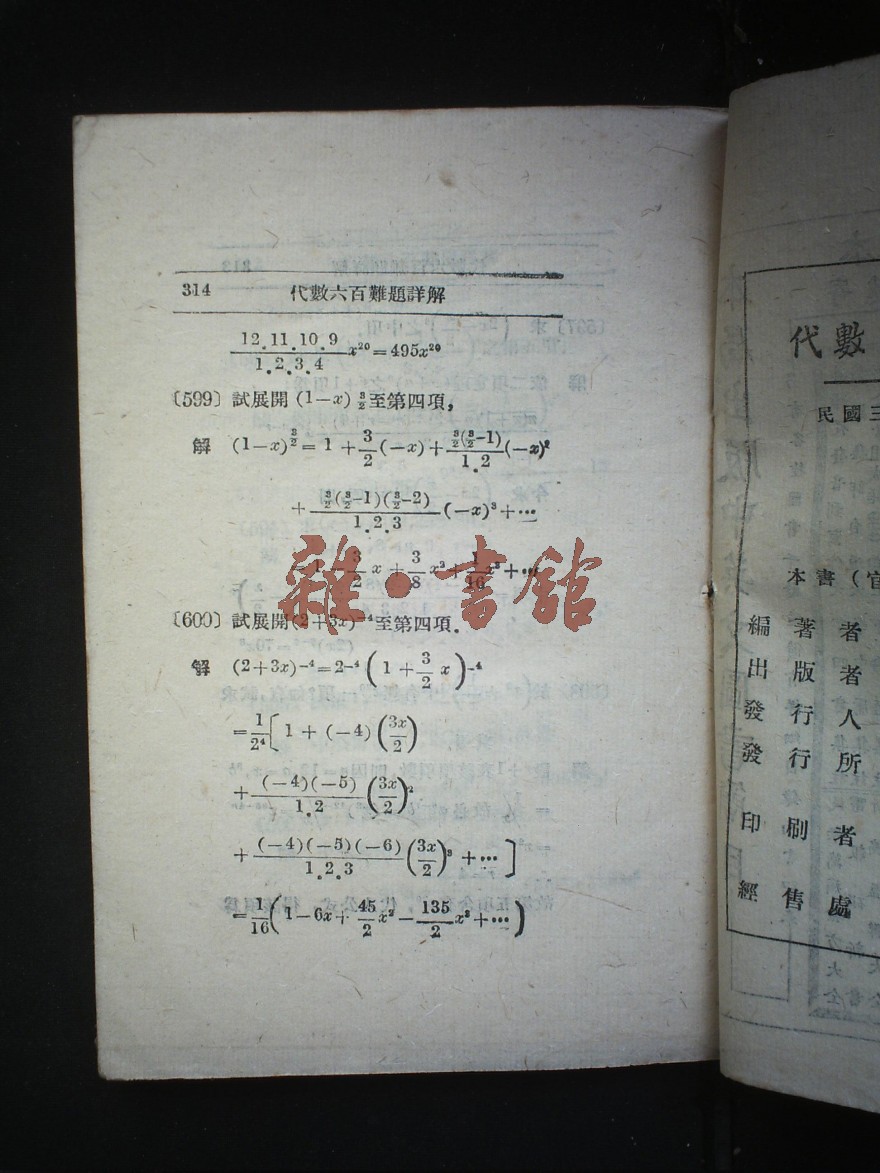 314 代數六百難題詳解
12.11.10.9/1.2.3.4 x²⁰=495x²⁰
〔599〕試展開 (1−x)^(3/2) 至第四項,
解 (1−x)^(3/2) = 1 + 3/2(−x) + (3/2(3/2−1))/(1.2) (−x)²
+ (3/2(3/2−1)(3/2−2))/(1.2.3) (−x)³+…
=1−3/2 x+3/8 x²+1/16 x³+…
〔600〕試展開(2+3x)⁻⁴至第四項.
解 (2+3x)⁻⁴=2⁻⁴(1+3/2 x)⁻⁴
=1/2⁴[1+(−4)(3x/2)
+ (−4)(−5)/1.2 (3x/2)²
+ (−4)(−5)(−6)/1.2.3 (3x/2)³ +…]
=1/16(1−6x+45/2 x²−135/2 x³+…)
雜·書館
代數
民國三
本書(
編著者
出版者
發行人
發行所
印刷者
經售處